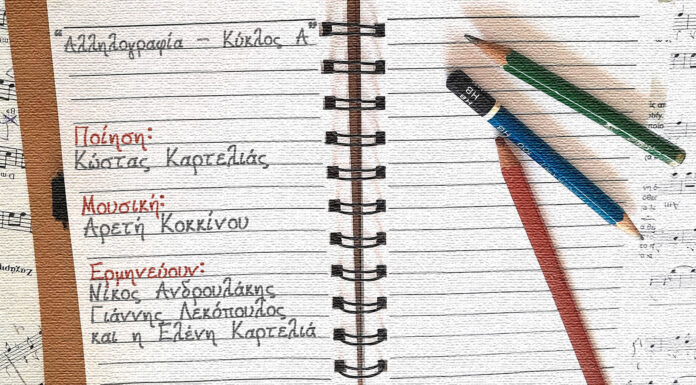 “Αλληλογραφία – Κύκλος Α”
Ποίηση:
Κώστας Καρτελιάς
Μουσική:
Αρετή Κοκκίνου
Ερμηνεύουν:
Νίκος Ανδρουλάκης
Γιάννης Λεκόπουλος
και η Ελένη Καρτελιά
HB
HB